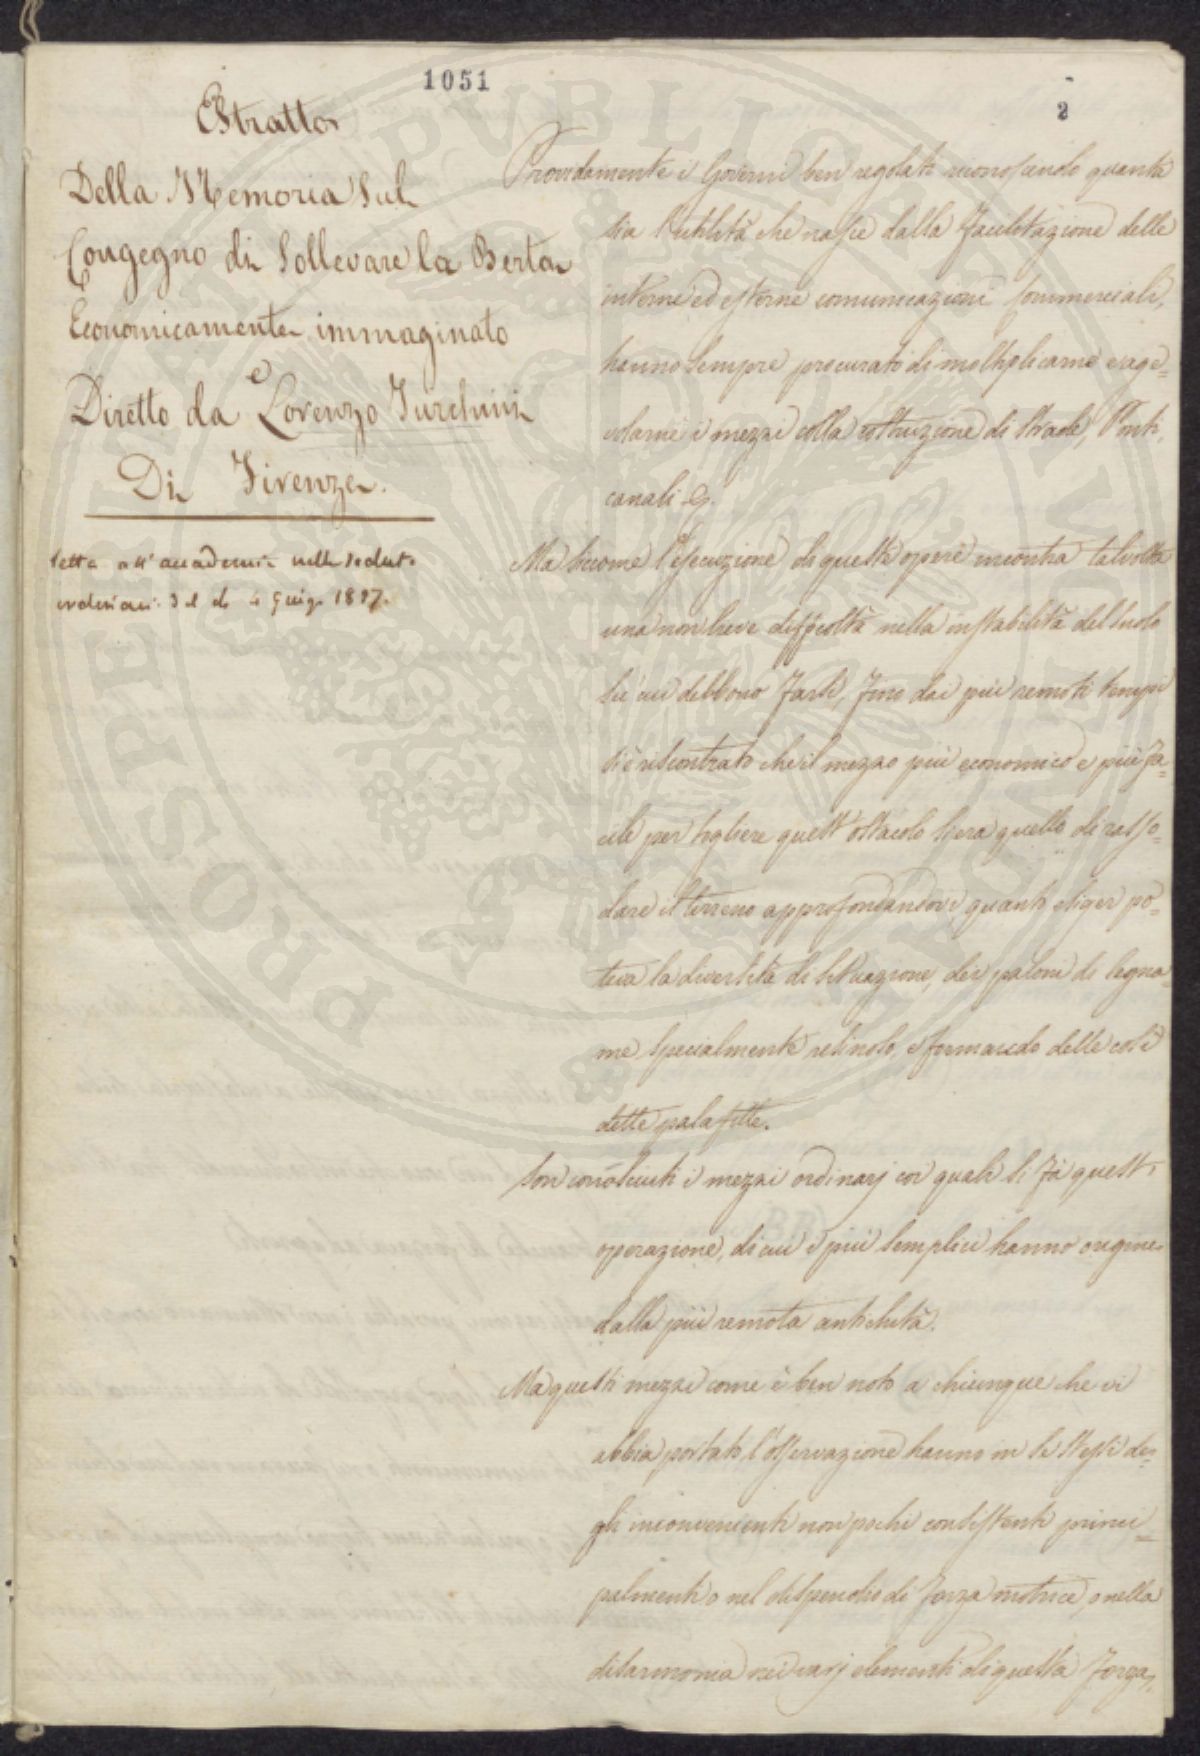 1051
2
Estratto
Della Memoria Sul
Congegno di Sollevare la Berta
Economicamente immaginato
e
Diretto da Lorenzo Turchini
Di Firenze.
letta all'accademia nella seduta
ordinaria del dì 4 Giug.
Providamente i Governi ben regolati riconoscendo quanta
sia l'utilità che nasce dalla facilitazione delle
interne ed esterne comunicazioni Commerciali,
hanno sempre procurato di moltiplicarne e age=
volarne i mezzi colla costruzione di strade, Ponti,
canali &.
Ma siccome l'esecuzione di queste opere incontra talvolta
una non lieve difficoltà nella instabilità del suolo
su cui debbono farsi, fino dai più remoti tempi
si è riscontrato che il mezzo più economico e più fa=
cile per togliere quest'ostacolo si era quello di rasso=
dare il terreno approfondandovi, quanto esiger po=
teva la diversità di situazione, dei paloni di legna=
me specialmente resinoso, e formando delle così
dette palafitte.
Son conosciuti i mezzi ordinarj coi quali si fà quest'
operazione, di cui i più semplici hanno origine
dalla più remota antichità.
Ma questi mezzi come è ben noto a chiunque che vi
abbia portato l'osservazione hanno in se stessi de=
gli inconvenienti non pochi consistenti princi=
palmente o nel dispendio di forza motrice, o nella
disarmonia nei varj elementi di questa forza,
PROSPERITATI PUBLICAE